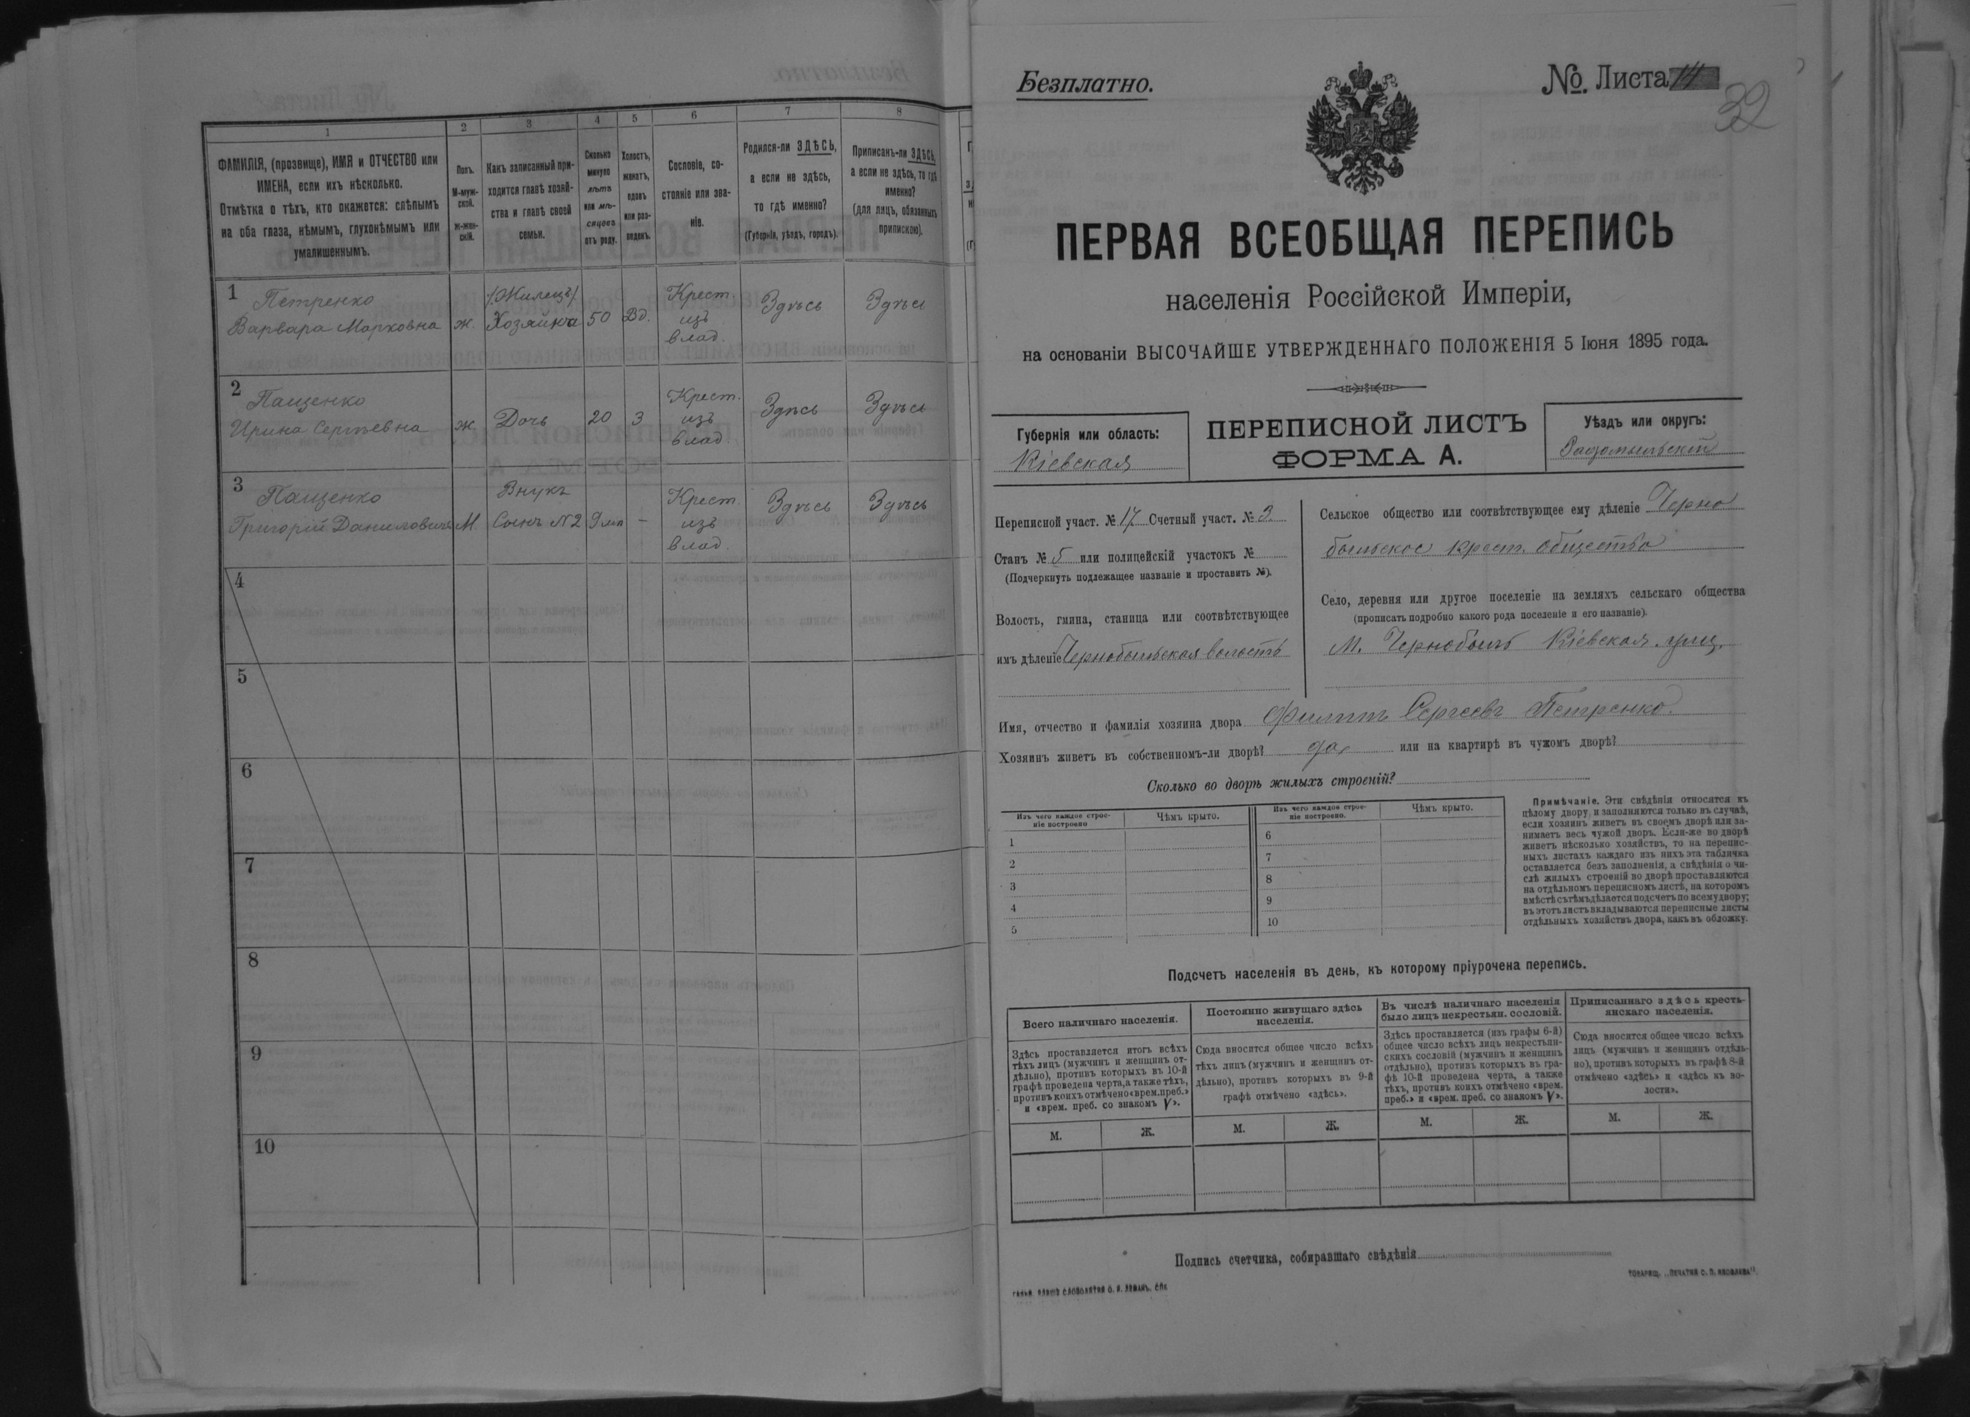 1
2
3
4
5
6
7
8
ФАМИЛІЯ, (прозвище), ИМЯ и ОТЧЕСТВО или
ИМЕНА, если ихъ нѣсколько.
Отмѣтка о тѣхъ, кто окажется: слѣпымъ
на оба глаза, нѣмымъ, глухонѣмымъ или
умалишеннымъ.
Полъ.
М-муж-
ской.
Ж-жен-
скій.
Какъ записанный при-
ходится главѣ хозяй-
ства и главѣ своей
семьи.
Сколько
минуло
лѣтъ
или мѣ-
сяцевъ
отъ роду.
Холостъ,
женатъ,
вдовъ
или раз-
веденъ.
Сословіе, со-
стояніе или зва-
ніе.
Родился-ли ЗДѢСЬ,
а если не здѣсь,
то гдѣ именно?
(Губернія, уѣздъ, городъ).
Приписанъ-ли ЗДѢСЬ,
а если не здѣсь, то гдѣ
именно?
(для лицъ, обязанныхъ
припискою).
1
Петренко
Варвара Марковна
ж.
/Жилецъ/
Хозяйка
50
Вд.
Крест.
изъ
влад.
Здѣсь
Здѣсь
2
Пащенко
Ирина Сергѣевна
ж.
Дочь
20
З
Крест.
изъ
влад.
Здѣсь
Здѣсь
3
Пащенко
Григорій Даниловичъ
М.
Внукъ
Сынъ №2
9 м
–
Крест
изъ
влад.
Здѣсь
Здѣсь
4
5
6
7
8
9
10
Безплатно.
№. Листа 14
32
ПЕРВАЯ ВСЕОБЩАЯ ПЕРЕПИСЬ
населенія Россійской Имперіи,
на основаніи ВЫСОЧАЙШЕ УТВЕРЖДЕННАГО ПОЛОЖЕНІЯ 5 Іюня 1895 года.
Губернія или область:
Кіевская
ПЕРЕПИСНОЙ ЛИСТЪ
ФОРМА А.
Уѣздъ или округъ:
Радомысльскій
Переписной участ. № 17 Счетный участ. № 3.
Станъ № 5 или полицейскій участокъ №
(Подчеркнуть подлежащее названіе и проставить №).
Волость, гмина, станица или соотвѣтствующее
имъ дѣленіе Чернобыльская волость
Сельское общество или соотвѣтствующее ему дѣленіе Черно
быльское крест. общество
Село, деревня или другое поселеніе на земляхъ сельскаго общества
(прописать подробно какого рода поселеніе и его названіе).
М. Чернобыль Кіевская улиц.
Имя, отчество и фамилія хозяина двора Филиппъ Сергѣевъ Петренко.
Хозяинъ живетъ въ собственномъ-ли дворѣ? да или на квартирѣ въ чужомъ дворѣ?
Сколько во дворѣ жилыхъ строеній?
Изъ чего каждое строе-
ніе построено
Чѣмъ крыто.
Изъ чего каждое строе-
ніе построено.
Чѣмъ крыто.
1
2
3
4
5
6
7
8
9
10
Примѣчаніе. Эти свѣдѣнія относятся къ
цѣлому двору, и заполняются только въ случаѣ,
если хозяинъ живетъ въ своемъ дворѣ или за-
нимаетъ весь чужой дворъ. Если-же во дворѣ
живетъ нѣсколько хозяйствъ, то на перепис-
ныхъ листахъ каждаго изъ нихъ эта табличка
оставляется безъ заполненія, а свѣдѣнія о чи-
слѣ жилыхъ строеній во дворѣ проставляются
на отдѣльномъ переписномъ листѣ, на которомъ
вмѣстѣ съ тѣмъ дѣлается подсчетъ по всему двору;
въ этотъ листъ вкладываются переписные листы
отдѣльныхъ хозяйствъ двора, какъ въ обложку.
Подсчетъ населенія въ день, къ которому пріурочена перепись.
Всего наличнаго населенія.
Здѣсь проставляется итогъ всѣхъ
тѣхъ лицъ (мужчинъ и женщинъ от-
дѣльно), противъ которыхъ въ 10-й
графѣ проведена черта, а также тѣхъ,
противъ коихъ отмѣчено «врем. преб.»
и «врем. преб. со знакомъ V».
Постоянно живущаго здѣсь
населенія.
Сюда вносится общее число всѣхъ
тѣхъ лицъ (мужчинъ и женщинъ от-
дѣльно), противъ которыхъ въ 9-й
графѣ отмѣчено «здѣсь».
Въ числѣ наличнаго населенія
было лицъ некрестьян. сословій.
Здѣсь проставляется (изъ графы 6-й)
общее число всѣхъ лицъ некрестьян-
скихъ сословій (мужчинъ и женщинъ
отдѣльно), противъ которыхъ въ гра-
фѣ 10-й проведена черта, а также
тѣхъ, противъ коихъ отмѣчено «врем.
преб.» и «врем. преб. со знакомъ V».
Приписаннаго здѣсь кресть-
янскаго населенія.
Сюда вносится общее число всѣхъ
лицъ (мужчинъ и женщинъ отдѣль-
но), противъ которыхъ въ графѣ 8-й
отмѣчено «здѣсь» и «здѣсь къ во-
лости».
М.
Ж.
М.
Ж.
М.
Ж.
М.
Ж.
Подпись счетчика, собиравшаго свѣдѣнія